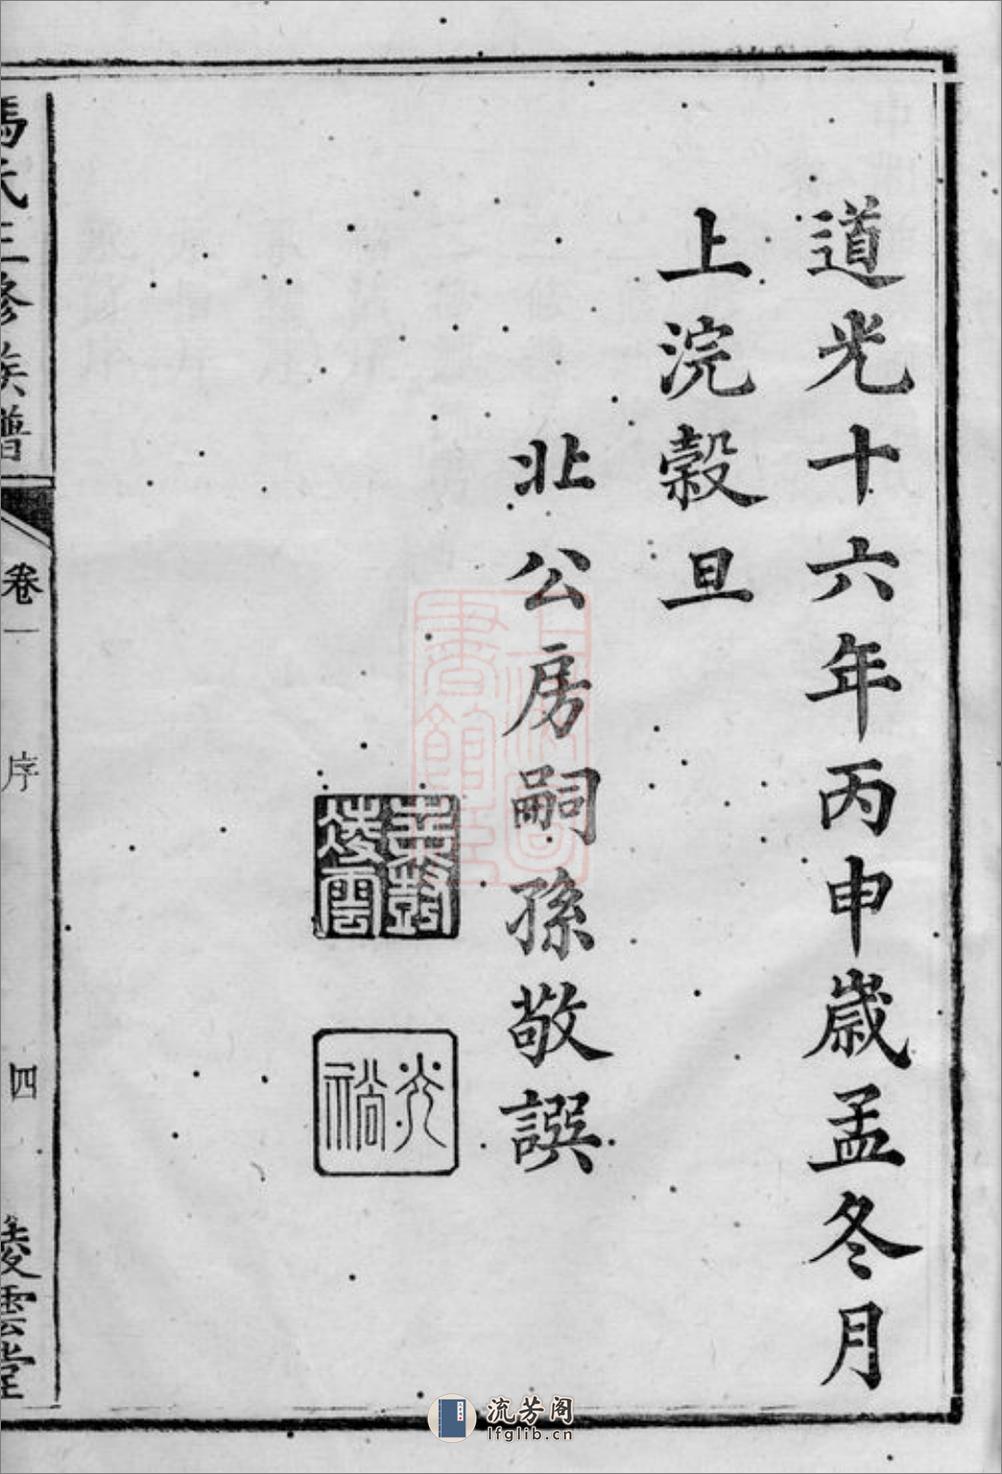 道光十六年丙申歲孟冬月
上浣穀旦
北公房嗣孫敬譔
凌雲
光裕
馮氏三修族譜
卷一
序
四
凌雲堂
流芳阁
lfglib.cn